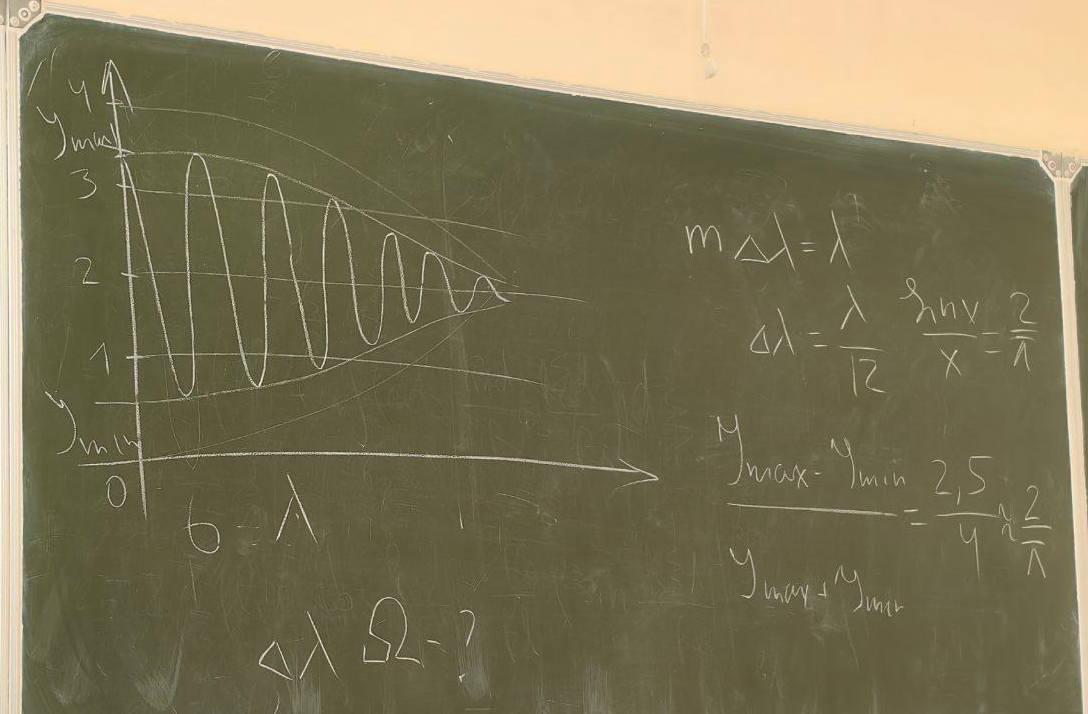 4
y max
3
2
1
y min
0
b = λ
Δλ Ω = ?
m Δλ = λ
Δλ = λ/12 sinx/x = 2/π
(y max - y min)/(y max + y min) = 2,5/4 ≈ 2/π